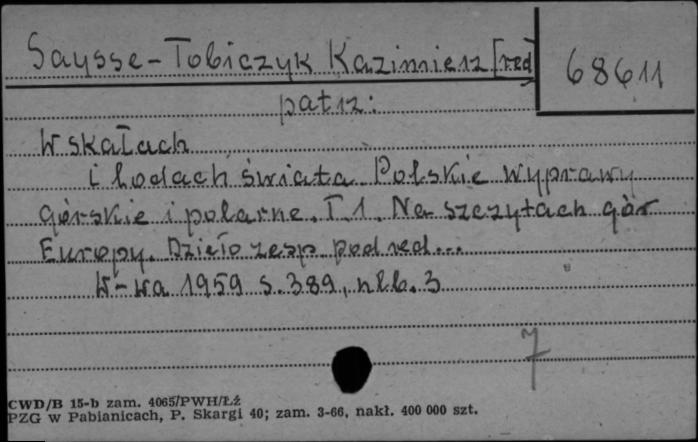 Saysse-Tobiczyk Kazimierz [red]
68611
patrz:
W skałach
i lodach świata. Polskie wyprawy
górskie i polarne. T. 1. Na szczytach gór
Europy. Dzieło zesp. pod red...
W-wa 1959 s. 389, nlb. 3
7
CWD/B 15-b zam. 4065/PWH/Łź
PZG w Pabianicach, P. Skargi 40; zam. 3-66, nakł. 400 000 szt.